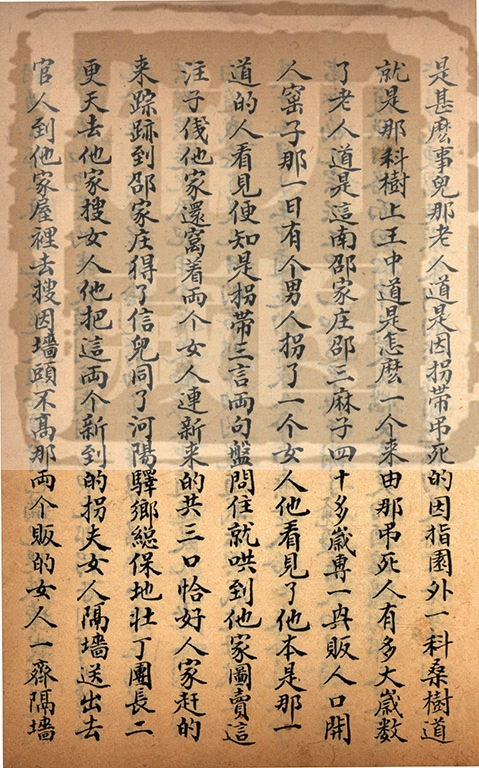 是甚麽事兒那老人道是因拐帶吊死的因指園外一科桑樹道
就是那科樹上王中道是怎麽一个来由那吊死人有多大歲数
了老人道是這南邵家庄邵三麻子四十多歲専一興販人口開
人窑子那一日有个男人拐了一个女人他看見了他本是那一
道的人看見便知是拐帶三言両句盤問住就哄到他家圖賣這
注子銭他家還窩着両个女人連新来的共三口恰好人家赶的
来踪跡到邵家庄得了信兒同了河陽驛鄉縂保地壮丁團長二
更天去他家搜女人他把這両个新到的拐夫女人隔墻送出去
官人到他家屋裡去搜因墻頭不髙那両个販的女人一齊隔墻